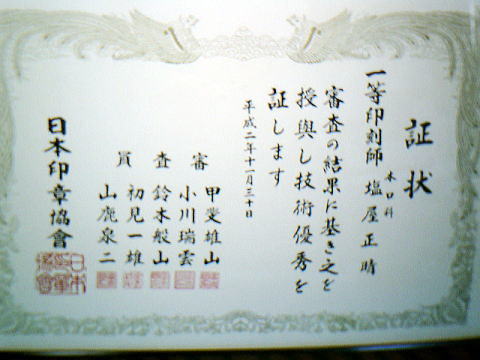 証状
木口科
一等印刻師 塩屋正晴
審査の結果に基き之を
授與し技術優秀を
証します
平成二年十一月三十日
審査員
甲斐雄山
小川瑞雲
鈴木般山
初見一雄
山鹿泉二
日本印章協會